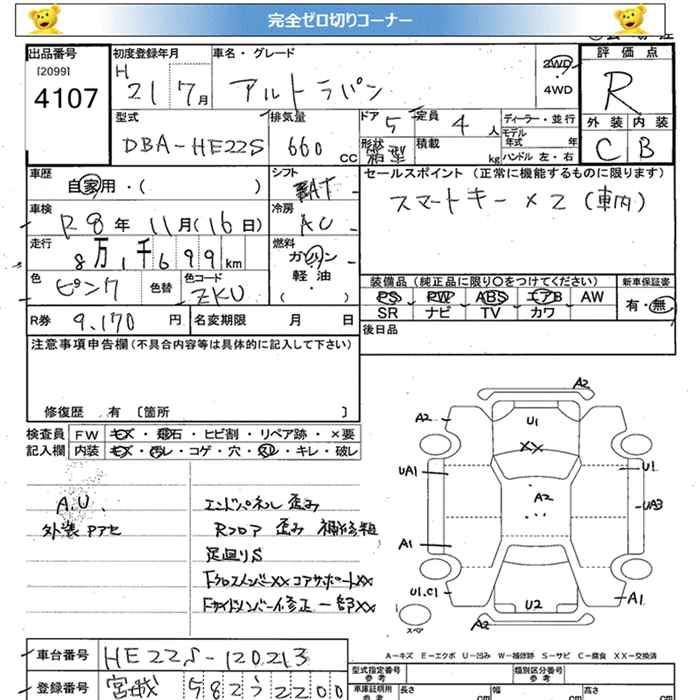 完全ゼロ切りコーナー
出品番号 初度登録年月 車名・グレード 評価点
[2099] H 2WD
4107 21 7月 アルトラパン 4WD R
型式 排気量 ドア 定員 ディーラー・並行 外装 内装
DBA-HE22S 660 CC 5 4人 モデル年式 年 C B
形状 箱型 積載 kg ハンドル 左・右
車歴 シフト セールスポイント (正常に機能するものに限ります)
自家用・( ) AT スマートキー×2(車内)
車検 R8年 11月(16日) 冷房 AC
走行 8万1千699km 燃料 ガソリン
色 ピンク 色替 色コード ZKU 軽油 ( )
装備品(純正品に限り○をつけてください) 新車保証書
PS PW ABS エアB AW 有・無
SR ナビ TV カワ
R券 9,170円 名変期限 月 日 後日品
注意事項申告欄(不具合内容等は具体的に記入して下さい)
修復歴 有 [箇所 ]
検査員 FW キズ・飛石・ヒビ割・リペア跡・×要
記入欄 内装 キズ・汚レ・コゲ・穴・スレ・キレ・破レ
A.U.
外装Pアセ
エンドパネル歪み
Rフロア 歪み 補修粗
足廻りS
FクロスメンバーXXコアサポートXX
Fサイドメンバー修正一部XX
A2
A2 U1
XX
UA1 U1
A2 UA3
A1
U1.C1 A1
U2
A2
スペア
A-キズ E-エクボ U-凹み W-補修跡 S-サビ C-腐食 XX-交換済
車台番号 HE22S-120213 型式指定番号 参考 類別区分番号 参考
登録番号 宮城 582 う 2200 車庫証明用 参考 長さ cm 幅 cm 高さ cm